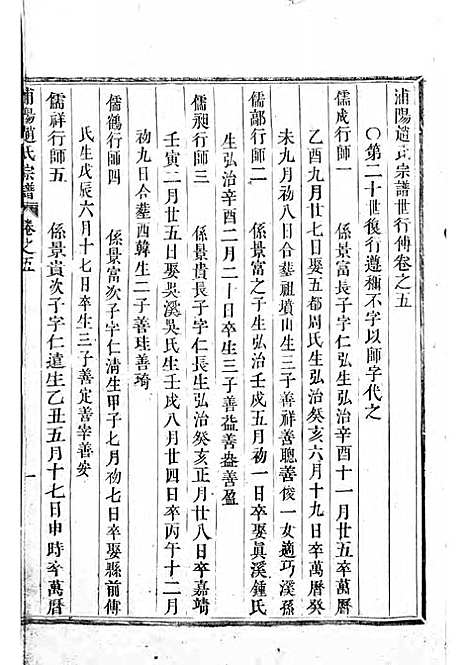 浦陽趙氏宗譜世行傳卷之五
〇第二十世復行遵稱不字以師字代之
儒成行師一　係景富長子字仁弘生弘治辛酉十一月廿五卒萬厯
乙酉九月初七日娶五都周氏生弘治癸亥六月十九日卒萬厯癸
未九月初八日合塟祖墳山生三子善祥善聰善俊一女適巧溪孫
儒部行師二　係景富之子生弘治壬戌五月初一日卒娶眞溪鍾氏
生弘治辛酉二月二十日卒生三子善益善盎善盈
儒昶行師三　係景貴長子字仁長生弘治癸亥正月廿八日卒嘉靖
壬寅二月廿五日娶吳溪吳氏生壬戌八月廿四日卒丙午十二月
初九日合塟西韓生二子善珪善琦
儒鶴行師四　係景富次子字仁淸生甲子七月初七日卒娶縣前傅
氏生戊辰六月十七日卒生三子善定善宰善安
儒祥行師五　係景貴次子字仁遣生乙丑五月十七日申時卒萬厯
浦陽趙氏宗譜　卷之五　一